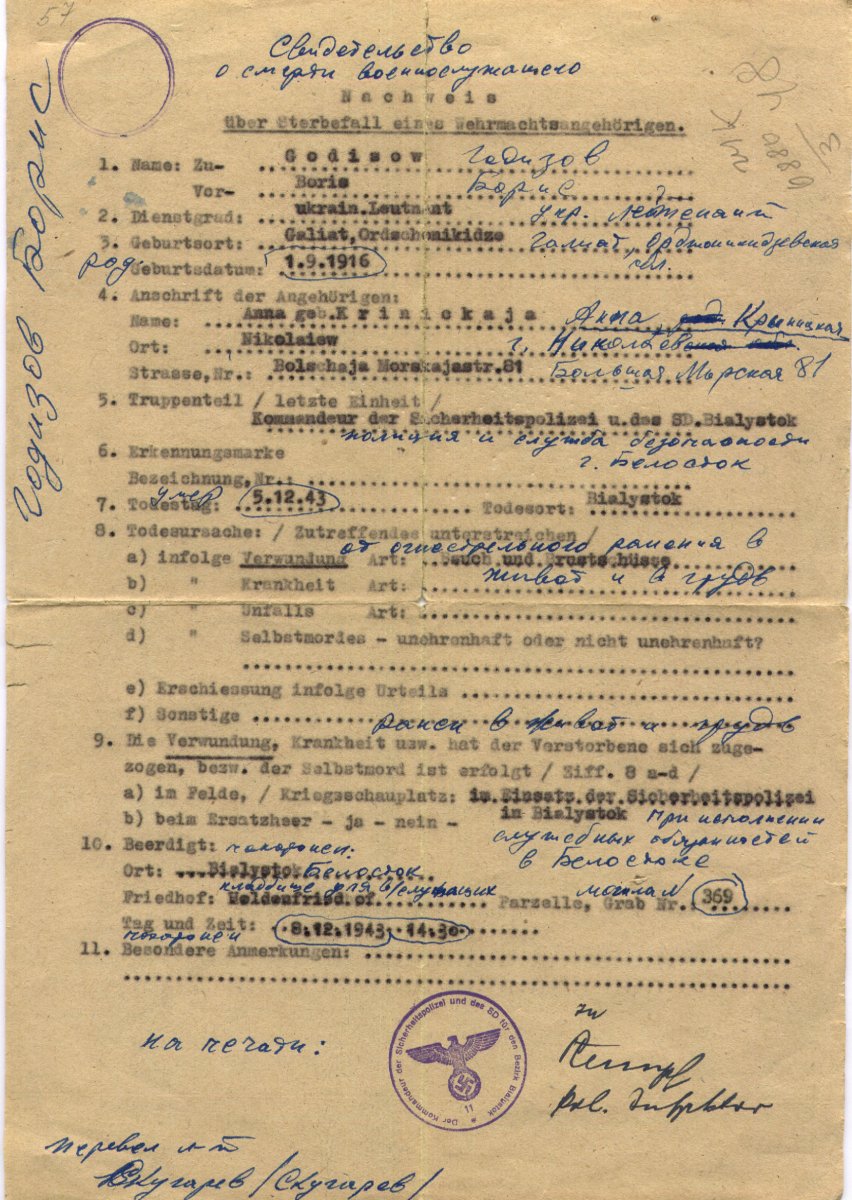 57
Свидетельство
о смерти военнослужащего
Nachweis
über Sterbefall eines Wehrmachtsangehörigen.
Годизов Борис
1. Name: Zu- Godisow Годизов
Vor- Boris Борис
2. Dienstgrad: ukrain.Leutnant укр. лейтенант
3. Geburtsort: Galiat,Ordschonikidze Галиат, Орджоникидзевская
род. Geburtsdatum: 1.9.1916 обл.
4. Anschrift der Angehörigen:
Name: Anna geb.Krinickaja Анна, Крыницкая
Ort: Nikolaiew г. Николаев
Strasse,Nr.: Bolschaja Morskajastr.81 Большая Морская 81
5. Truppenteil / letzte Einheit /
Kommandeur der Sicherheitspolizei u.des SD.Bialystok
полиция и служба безопасности
6. Erkennungsmarke г. Белосток
Bezeichnung,Nr.:
7. Todestag: умер 5.12.43 Todesort: Bialystok
8. Todesursache: / Zutreffendes unterstreichen /
от огнестрельного ранения в
a) infolge Verwundung Art: Bauch und Brustschüsse
живот и в грудь
b) " Krankheit Art:
c) " Unfalls Art:
d) " Selbstmordes - unehrenhaft oder nicht unehrenhaft?
e) Erschiessung infolge Urteils
f) Sonstige ранен в живот и грудь
9. Die Verwundung, Krankheit usw. hat der Verstorbene sich zuge-
zogen, bezw. der Selbstmord ist erfolgt / Ziff. 8 a-d /
a) im Felde, / Kriegsschauplatz: im Einsatz der Sicherheitspolizei
b) beim Ersatzheer - ja - nein - in Bialystok при исполнении
служебных обязанностей
10. Beerdigt: похоронен: в Белостоке
Ort: Bialystok Белосток
кладбище для в/служащих могила N
Friedhof: Heldenfriedhof Parzelle, Grab Nr. 369
Tag und Zeit: 8.12.1943 14.30
похоронен
11. Besondere Anmerkungen:
на печати:
Der Kommandeur der Sicherheitspolizei und des SD für den Bezirk Bialystok
11
Pol. Inspektor
перевел л-т
Скугарев /Скугарев/